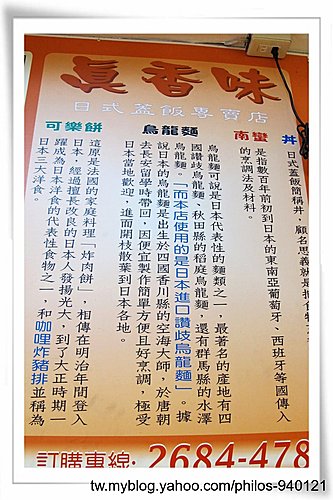 真香味
日式蓋飯專賣店
丼
日式蓋飯簡稱丼,顧名思義就是
南蠻
是指數百年前初到日本的東南亞葡萄牙、西班牙等國傳入
的烹調法及材料。
烏龍麵
烏龍麵可說是日本代表性的麵類之一,最著名的產地有四
國讚歧烏龍麵、秋田縣的稻庭烏龍麵,還有群馬縣的水澤
烏龍麵。「而本店使用的是日本進口讚歧烏龍麵」。據
說日本的烏龍麵是出生於四國香川縣的空海大師,於唐朝
去長安留學時帶回,因便宜製作簡單方便且好烹調,極受
日本當地歡迎,進而開枝散葉到日本各地。
可樂餅
這原是法國的家庭料理「炸肉餅」,相傳在明治年間登入
日本,經過擅長改良的日本人發揚光大,到了大正時期一
躍成為日本洋食的代表性食物之一,和咖哩炸豬排並稱為
日本三大洋食。
訂購專線:2684-478
tw.myblog.yahoo.com/philos-940121